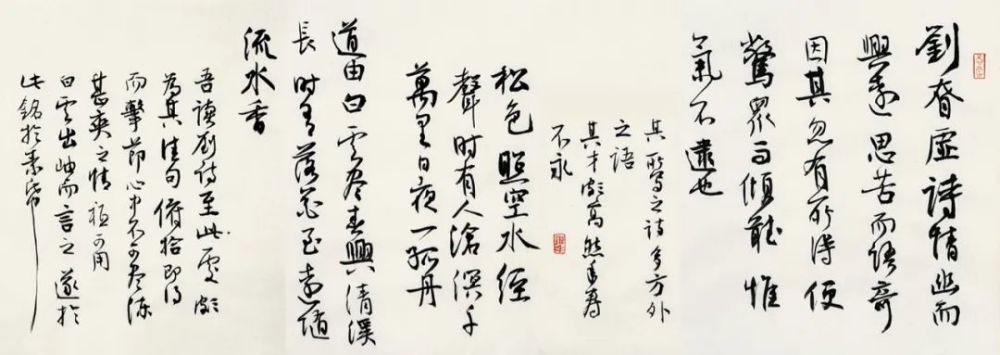 劉眘虛詩情幽而
興遠思苦而語奇
因其忽有所得便
驚眾而傾聽惟
氣不逮也
其之詩多方外
之語
其才頗高然年壽
不永
松色照空水經
聲時有人滄溟千
萬里日夜一孤舟
道由白雲盡春興清溪
長時有落花至遠隨
流水香
吾讀劉詩至此處頗
為其佳句俯拾即得
而擊節心中不可盡
甚爽之情極可用
白雲出岫而言之遂於
此銘於素帋